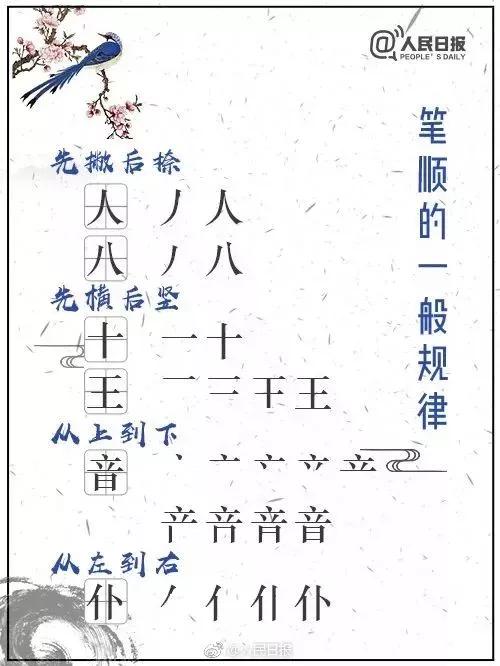 @人民日报
PEOPLE'S DAILY
笔顺的一般规律
先撇后捺
人 丿 人
八 丿 八
先横后竖
十 一 十
王 一 二 干 王
从上到下
音 丶 亠 立
产 咅 音 音
从左到右
仆 丿 亻 仆 仆
@人民日报